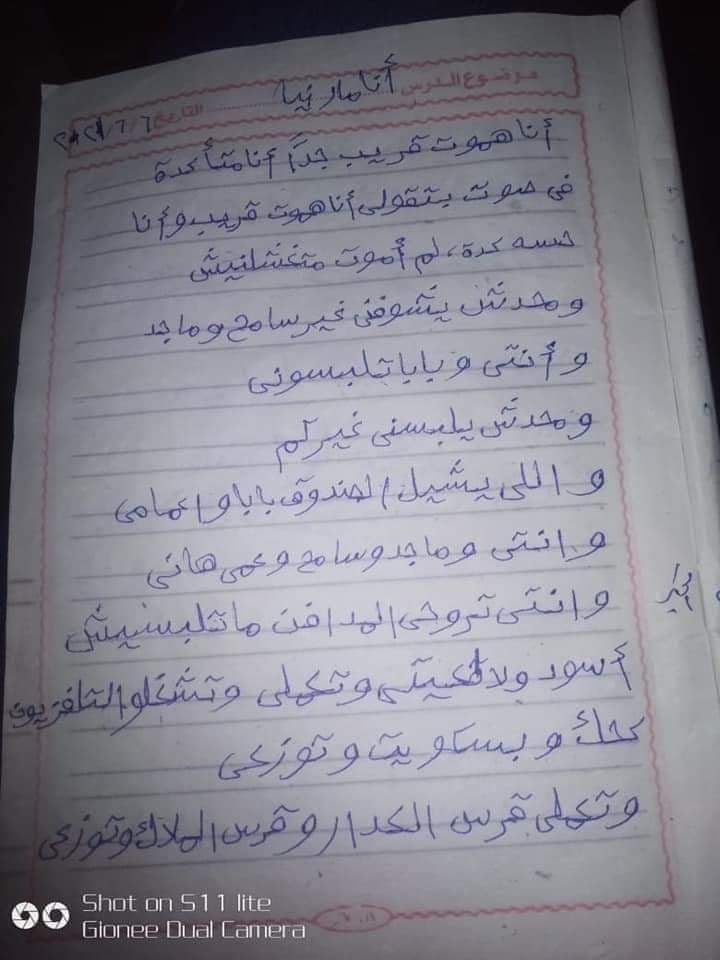 موضوع الدرس أنا مارينا
التاريخ ٢٠٢١/٦/٦
أنا هموت قريب جدًا أنا متأكدة
فى صوت بتقولى أنا هموت قريب وأنا
حسه كدة، لم أموت متغسلنيش
ومحدش يشوفنى غير سامح وماجد
وأنتى وبابا تلبسونى
ومحدش يلبسنى غيركم
واللى يشيل الصندوق بابا واعمامى
وانتى وماجد وسامح وعمى هانى
وانتى تروحى المدافن ماتلبسيش
أسود ولا وتعملى وتشغلو التلفزيون
كحك وبسكويت وتوزعى
وتعملى قرس الكدار وقرس الملاك وتوزعى
Shot on S11 lite
Gionee Dual Camera